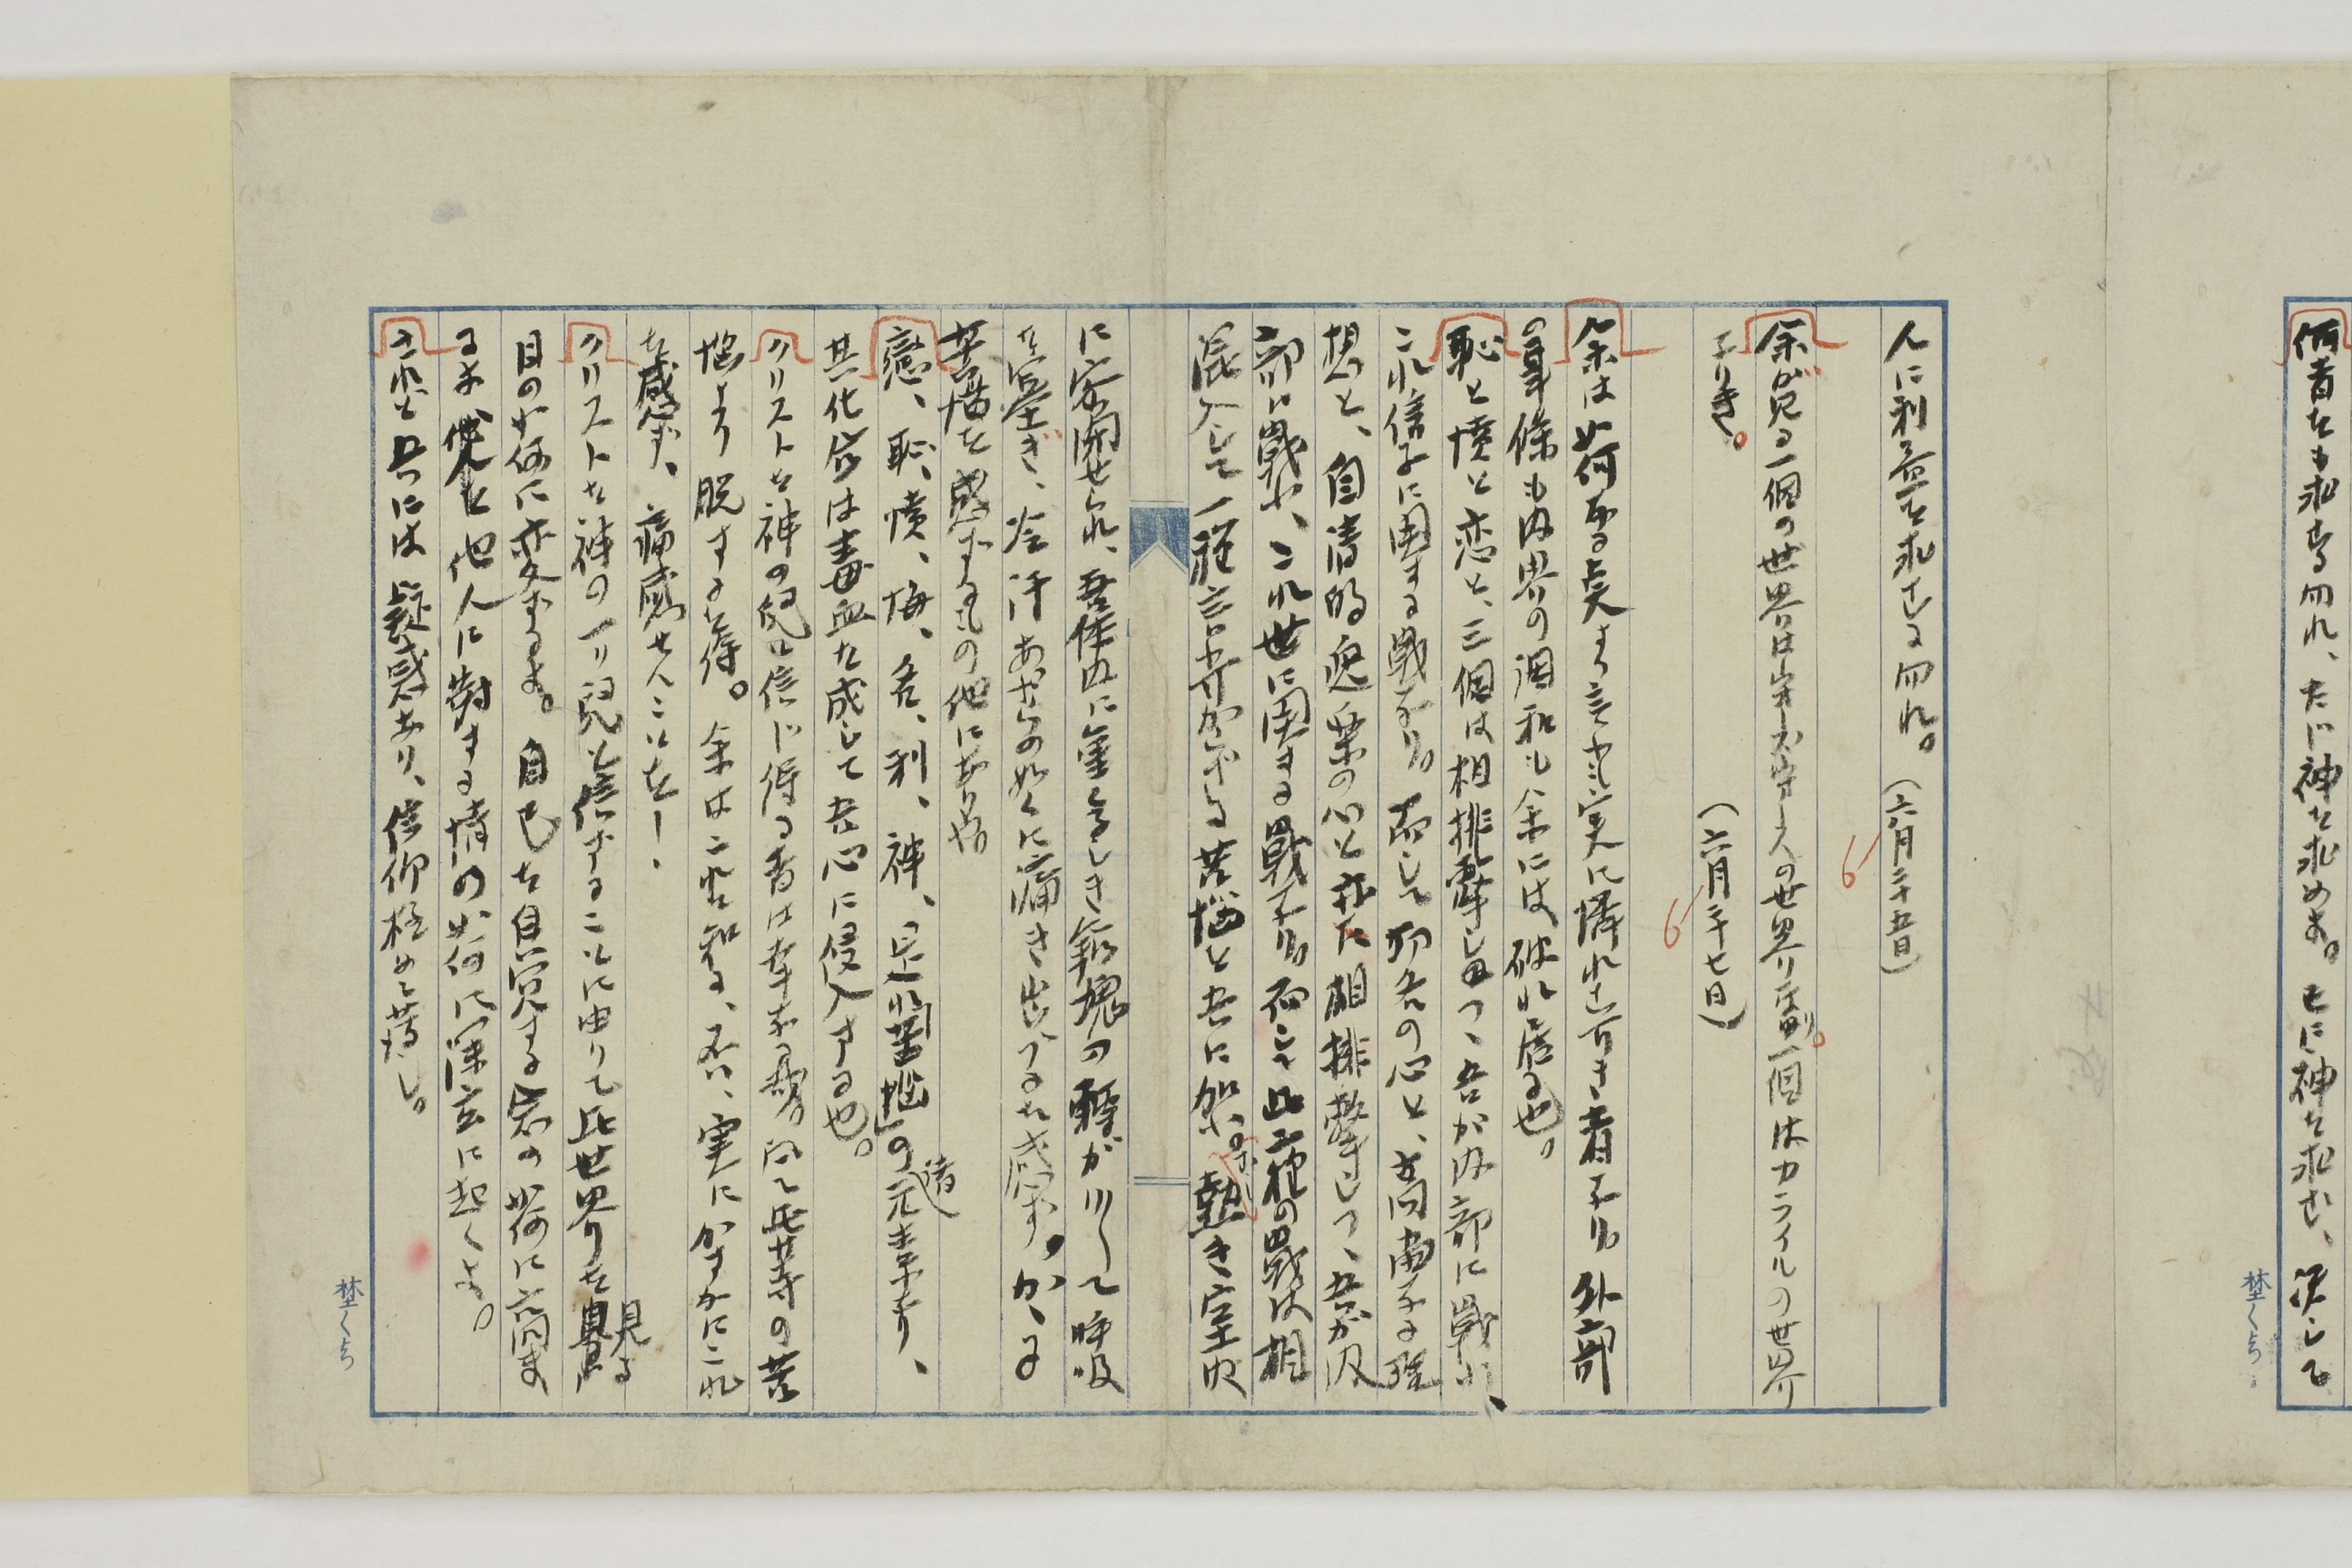 何者をも求むる勿れ、たゞ神を求めよ。已に神を求む、決して
人に利益を求むる勿れ。(六月二十五日)
余が見る一個の世界はウオーズウオースの世界り、一個はカライルの世界
なりき。
(六月二十七日)
6
6
余は如何なる点より言ふも実に憐れむ可き者なり。外部
の条も内界の調和も余には破れ居る也。
恥と憤と恋と、三個は相排撃しつゝ吾が内部に戦ふ、
これ信子に関する戦なり。而して功名の心と、高尚なる理
想と、自清的の心と亦た相排撃しつゝ、吾が内
部に戦ふ、これ世に関する戦なり。而して此二種の戦は相
混入して一種言ふ可からざる苦悩を吾に加ふ。熱き室内
に密閉せられ、吾体内に重々しき鉛塊の転が川して呼吸
を塞ぎ、冷汗あぶらの如くに滴き出づるを感ず。かゝる
苦悩を感ずるもの他にありや
恋、恥、憤、悔、名、利、神、是れ苦悩の諸元素なり、
其化合は毒血を成して吾心に侵入する也。
クリストを神の児と信じ得る者は幸なる哉。以て此等の苦
悩より脱するを得。余は之を知る、否、実にかすかにこれ
を感ず、痛感せんことを!
クリストを神の一り児と信ずることに由りて此世界を見る
目の如何に変ずるよ。自己を自覚する念の如何に高ま
るよ他人に対する情の如何に深玄に起くよ。
されど吾には疑惑あり、信仰極めて薄し。
埜くち
埜くち